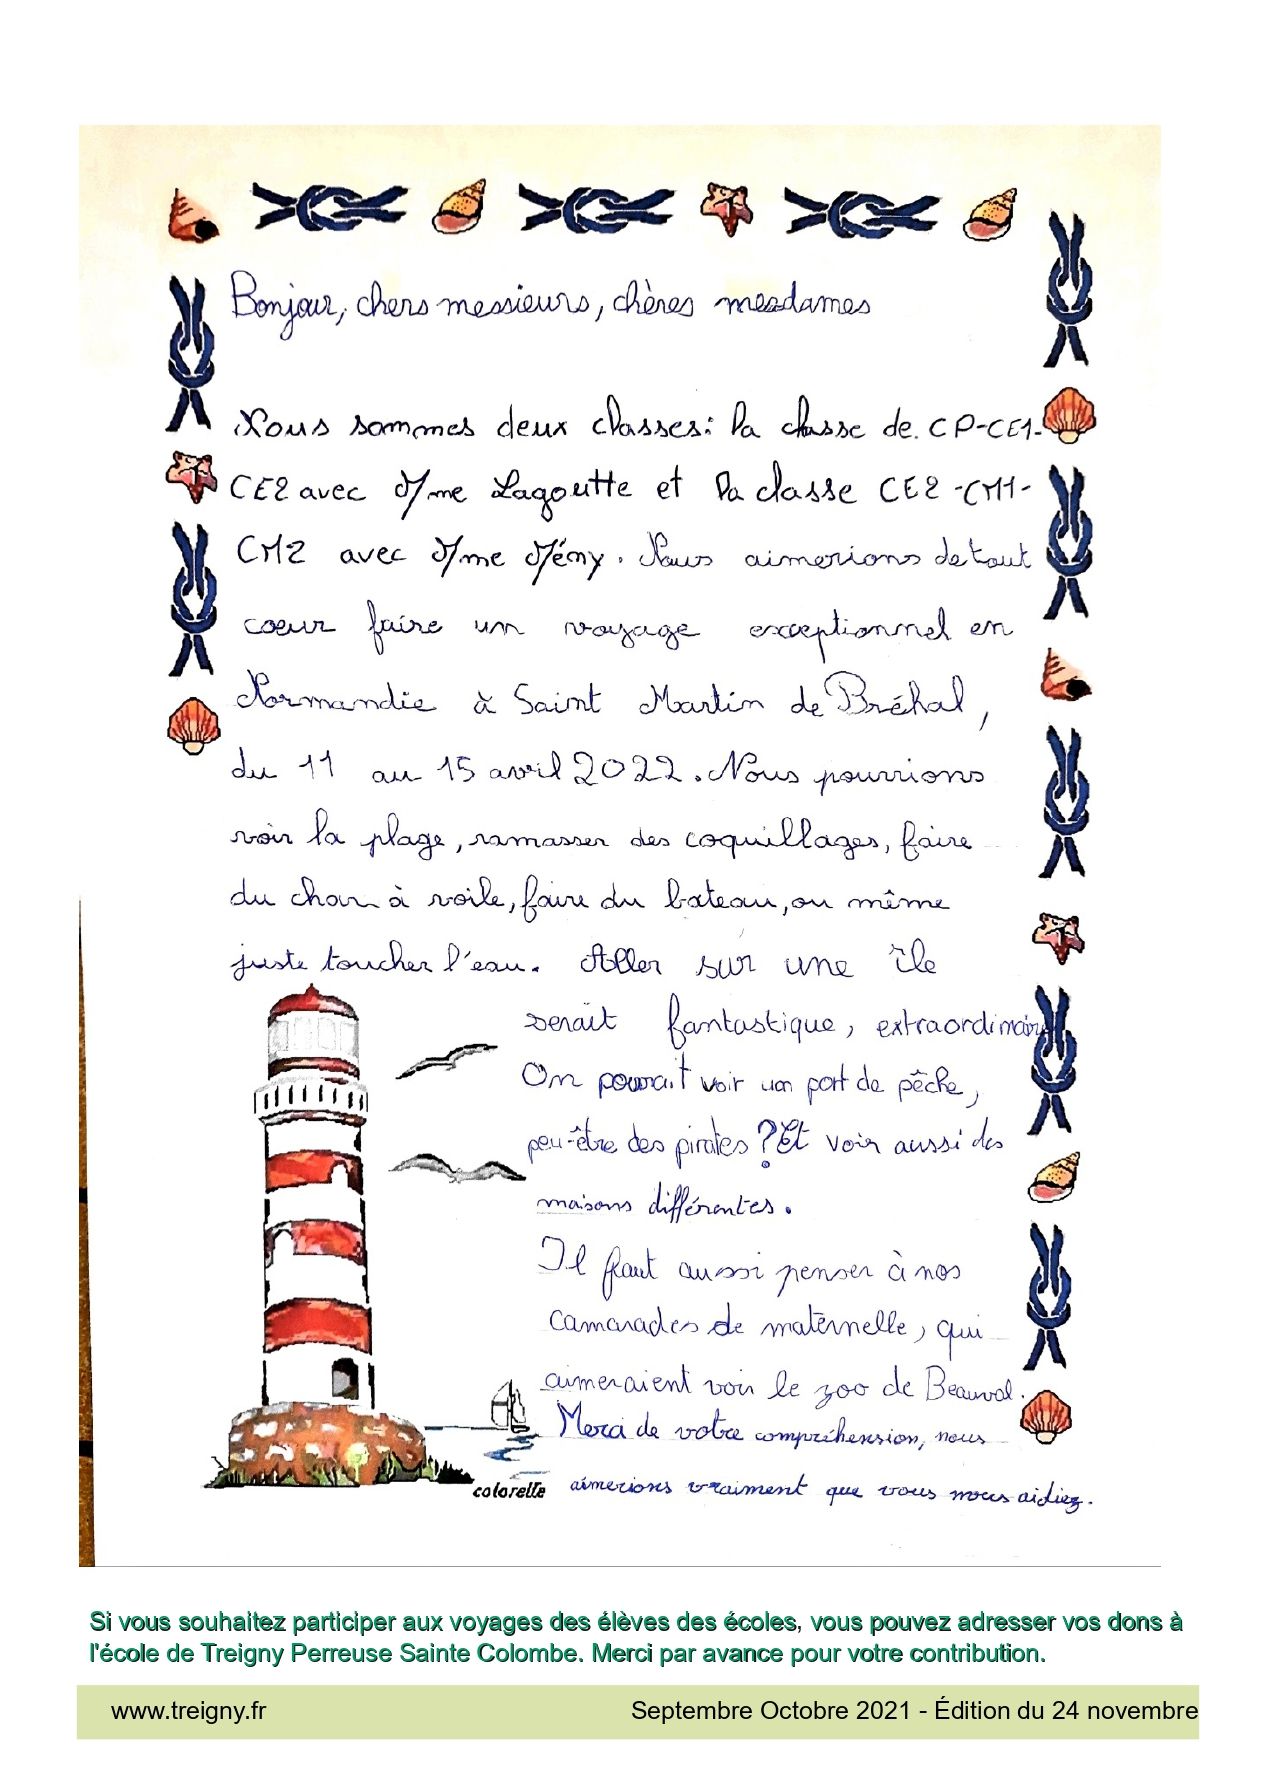 Bonjour, chers messieurs, chères mesdames
Nous sommes deux classes: la classe de CP-CE1-
CE2 avec Mme Lagoutte et la classe CE2-CM1-
CM2 avec Mme Mémy. Nous aimerions de tout
coeur faire un voyage exceptionnel en
Normandie à Saint Martin de Bréhal,
du 11 au 15 avril 2022. Nous pourrions
voir la plage, ramasser des coquillages, faire
du char à voile, faire du bateau, ou même
juste toucher l'eau. Aller sur une île
serait fantastique, extraordinaire
On pourait voir un port de pêche,
peu-être des pirates ? Et voir aussi des
maisons différentes.
Il faut aussi penser à nos
camarades de maternelle, qui
aimeraient voir le zoo de Beauval.
Merci de votre compréhension, nous
aimerions vraiment que vous nous aidiez.
colorelle
Si vous souhaitez participer aux voyages des élèves des écoles, vous pouvez adresser vos dons à
l'école de Treigny Perreuse Sainte Colombe. Merci par avance pour votre contribution.
www.treigny.fr Septembre Octobre 2021 - Édition du 24 novembre